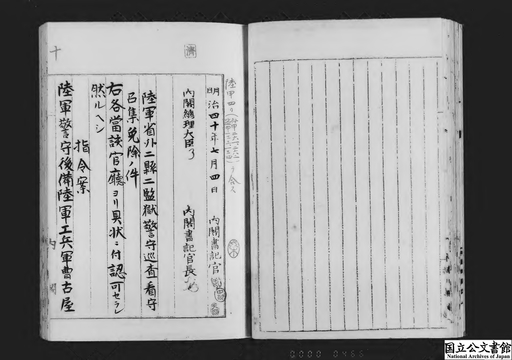 明治四十年七月四日
内閣書記官
内閣總理大臣
内閣書記官長
陸軍省外二縣二監獄警守巡査看守
召集免除ノ件
右各當該官廳ヨリ具状ニ付認可セラレ
然ルヘシ
指令案
陸軍警守後備陸軍工兵軍曹古屋
内閣
十
国立公文書館
National Archives of Japan